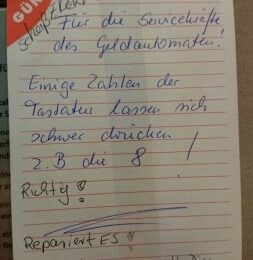 GÜN
Für die Servicekräfte
des Geldautomaten!
Einige Zahlen der
Tastatur lassen sich
schwer drücken
z.B die 8 !
Richtig!
Repariert ES!